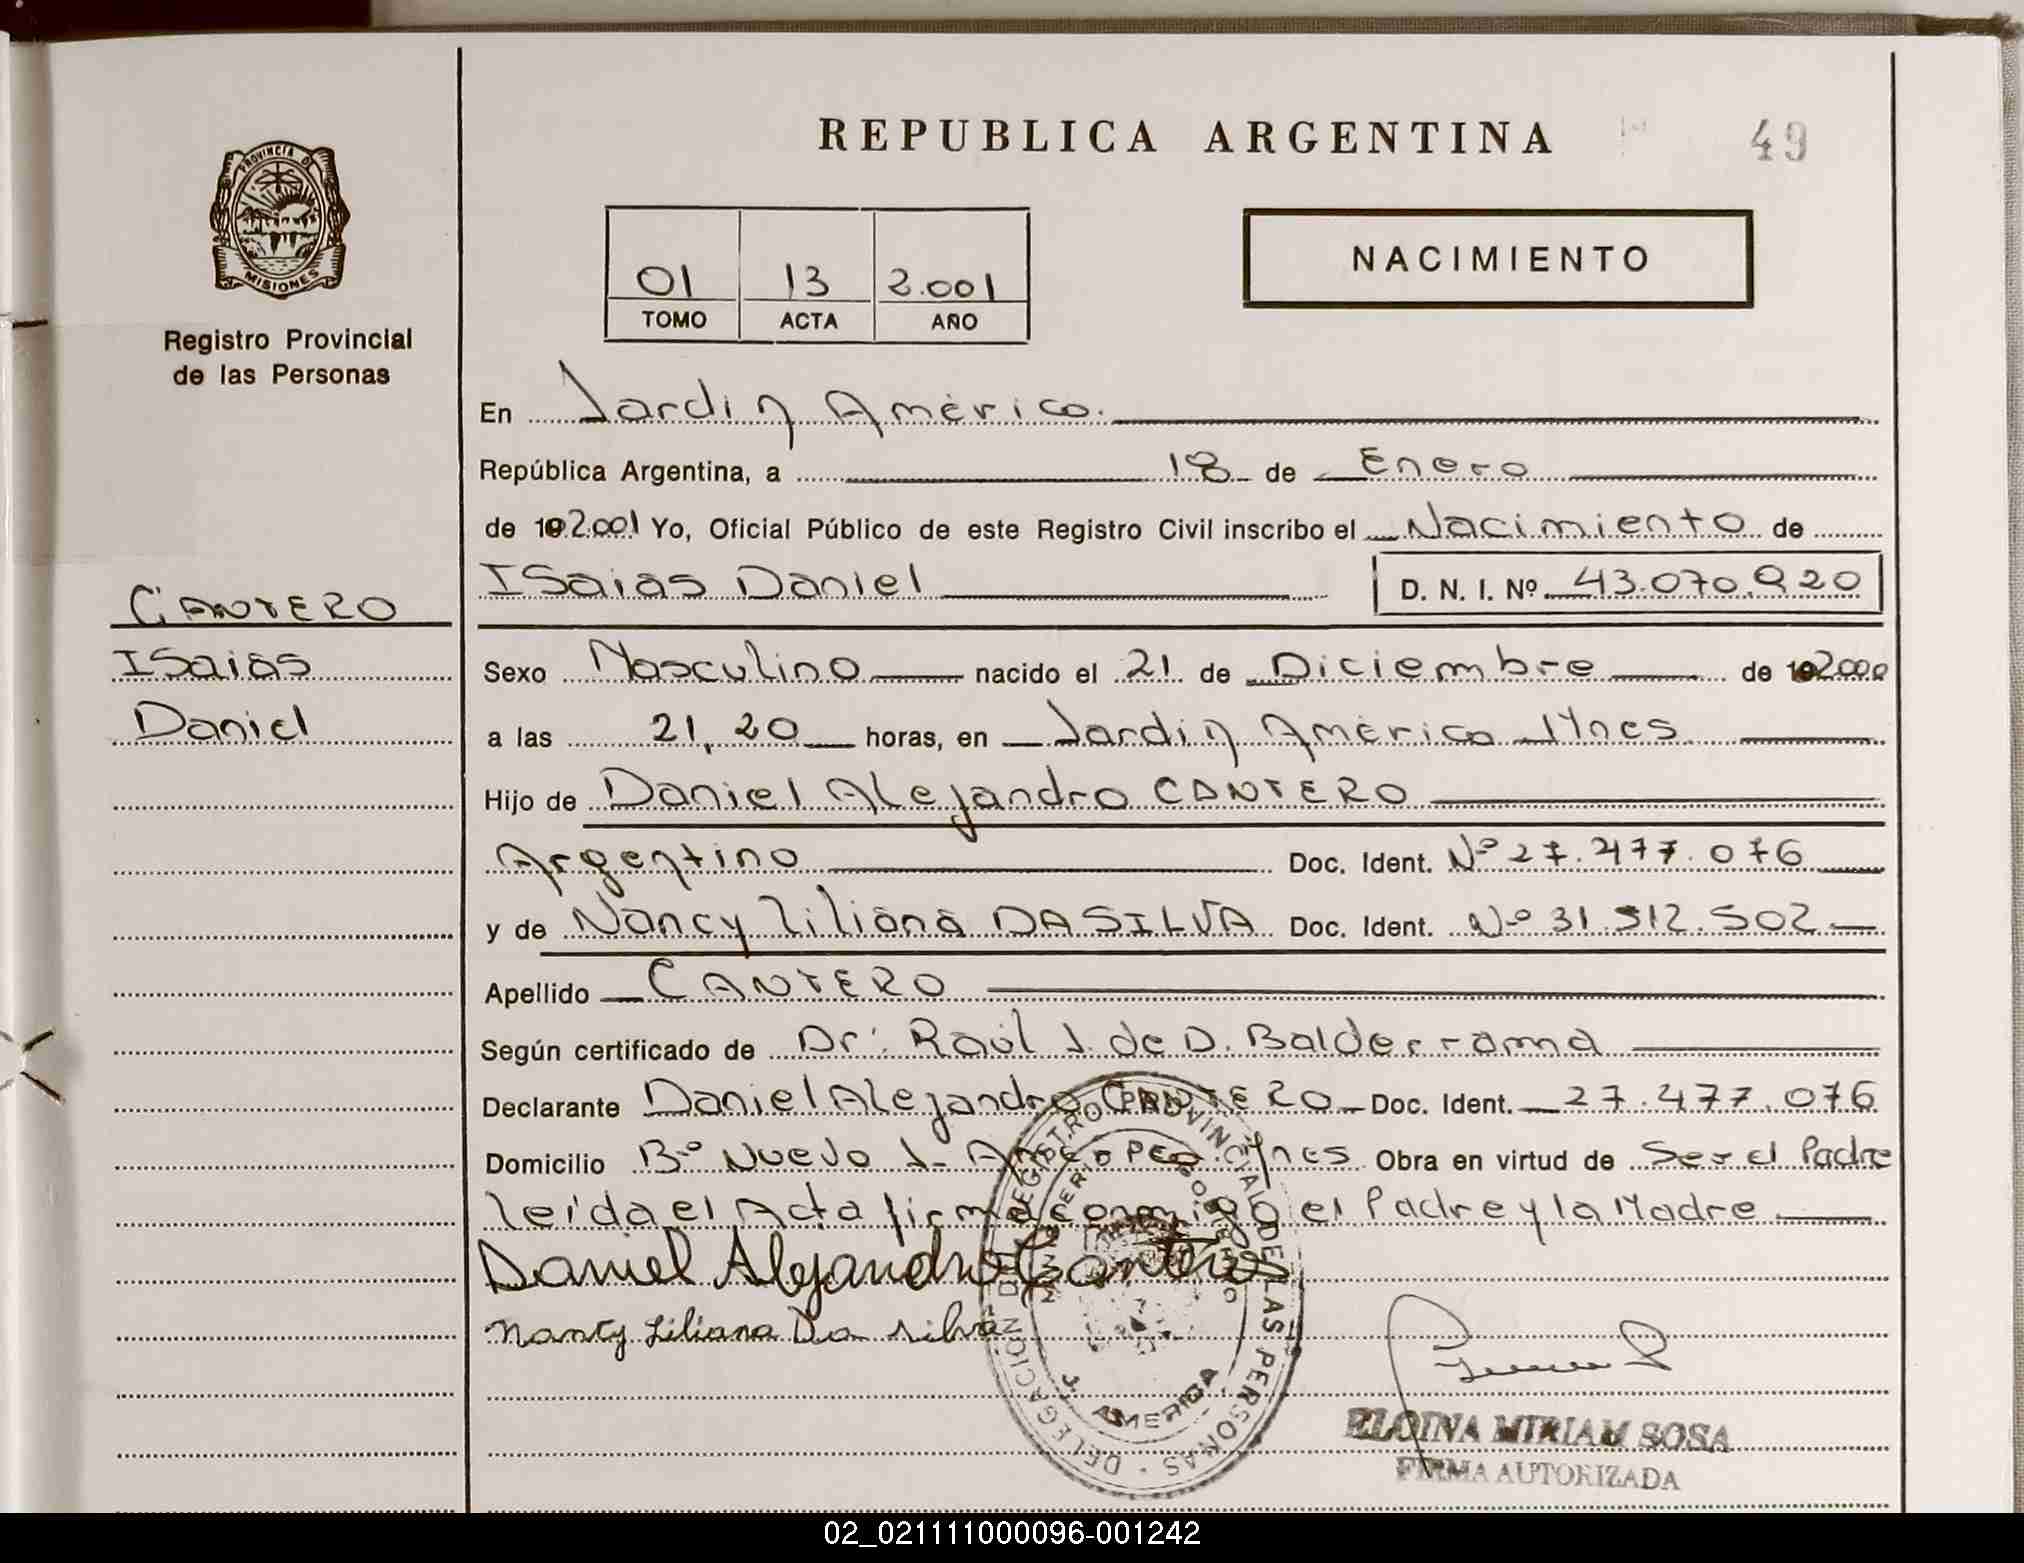 REPUBLICA ARGENTINA
49
PROVINCIA DE
MISIONES
Registro Provincial
de las Personas
01 13 2.001
TOMO ACTA AÑO
NACIMIENTO
En Jardin América.
República Argentina, a 18 de Enero
de 19 2.001 Yo, Oficial Público de este Registro Civil inscribo el Nacimiento de
Isaias Daniel D. N. I. Nº 43.070.920
CANTERO
Isaias
Daniel
Sexo Masculino nacido el 21 de Diciembre de 19 2000
a las 21,20 horas, en Jardin América Mnes
Hijo de Daniel Alejandro CANTERO
Argentino Doc. Ident. Nº 27.477.076
y de Nancy Liliana DA SILVA Doc. Ident. Nº 31.512.502
Apellido CANTERO
Según certificado de Dr: Raúl J. de D. Balderrama
Declarante Daniel Alejandro CANTERO Doc. Ident. 27.477.076
Domicilio Bº Nuevo J. Mnes Obra en virtud de Ser el Padre
leida el Acta firma conmigo el Padre y la Madre
Daniel Alejandro Cantero
Nancy Liliana Da silva
DELEGACION REGISTRO PROVINCIAL DE LAS PERSONAS
J. AMERICA
ELOINA MIRIAM SOSA
FIRMA AUTORIZADA
02_021111000096-001242